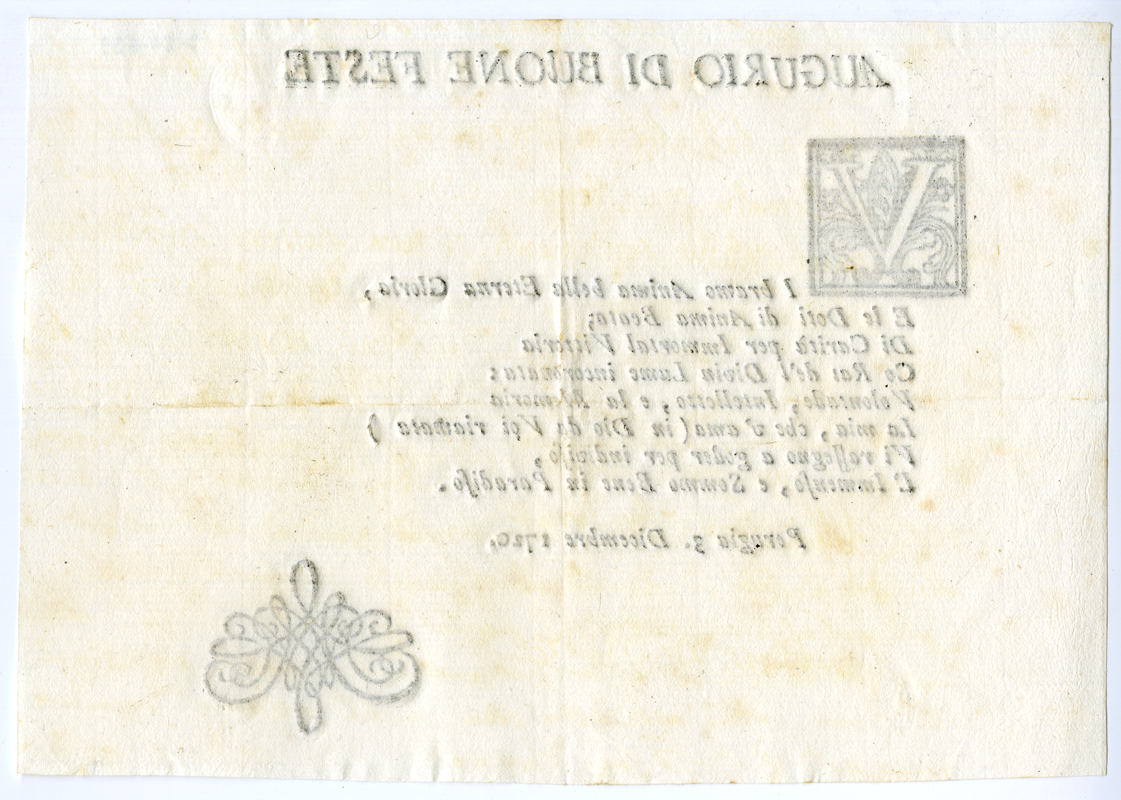 AUGURIO DI BUONE FESTE
VI bramo Anima bella Eterna Gloria,
E le Doti di Anima Beata;
Di Carità per Immortal Vittoria
Co Rai del Divin Lume incoronata:
Volontade, Intelletto, e la Memoria
La mia, che v'ama (in Dio da Voi riamata)
Vi rassegno a goder per indiviſo,
L'Immenſo, e Sommo Bene in Paradiſo.
Perugia 3. Dicembre 1720.